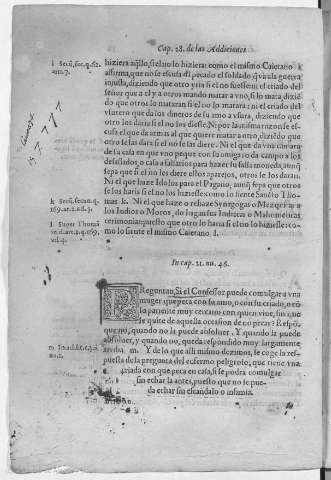 Cap. 28. de las Addiciones
hiziera aq̃llo, si el no lo hiziera: como el mismo Caietano k
affirma, que no se escusa dl peccado el soldado q̃ va a la guerra
injusta, diziendo que otro yria si el no fuesse: ni el criado del
señor que a el y a otros mandò matar a vno, si lo mata, diziẽ
do que otros lo mataran si el no lo matara: ni el criado del
vsurero que da los dineros de su amo a vsura, diziendo que
otro los daria si el no los diesse. Ni por la misma razon se es-
cusa el que da armas al que quiere matar a otro, diziẽdo que
otro se las dara si el no se las diere. Ni el que da vna camara
de su casa en que vno peque con su amiga: o da campo a los
desafiados, o casa a falsarios para hazer su falsa moneda, aunq̃
sepa que si el no les diere ellos aparejos, otros se los daran.
Ni el que haze Idolos para el Pagano, aunq̃ sepa que otros
se los haria si el no los hiziesse: como lo siente Sancto Tho-
mas k. Ni el que haze o rehaze Synagogas o Mezquitas a
los Iudios o Moros, do hagan sus Iudaicas o Mahometicas
cerimonias: puesto que otro lo haria si el no lo hiziesse: co-
mo lo siente el mismo Caietano l.
i Secũ. sec. q. 62.
ar. 7.
k Secũ. secun. q.
169. ar. 2. ad. 3.
l Super Thom.
in. d. ar. 2. q. 169.
ad. 4.
In cap. 21. nu. 46.
PReguntas, Si el Confessor puede comulgar a vna
muger que peca con su amo, o con su criado, o cõ
su pariente muy cercano con quien viue, sin q̃
se quite de aquella occasion de no pecar? Respõ
que no, quando no la puede absoluer. Y quando la puede
absoluer, y quando no, queda respondido muy largamente
arriba m. Y de lo que alli mismo dezimos, se coge la respue
sta de la pregunta del enfermo peligroso, que tiene vna
criada con que peca en casa, si se podra comulgar
sin echar la antes, puesto que no se pue-
da echar sin escandalo o infamia.